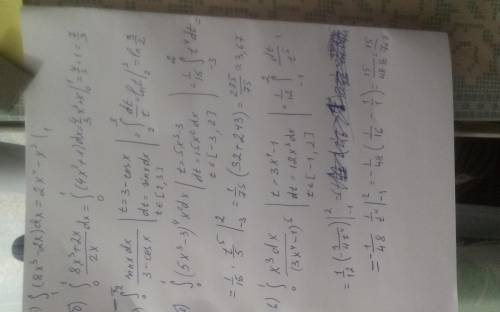 ∫(8x³-2x)dx = 2x⁴-x²|₁
б) ∫₀¹ (8x³+2x)/(2x) dx = ∫₀¹ (4x²+1)dx = 4/3 x³+x|₀¹ = 4/3+1 = 7/3
∫₀ sinxdx/(3-cosx) | t=3-cosx
dt=sinxdx
t∈[2,3] | = ∫₂³ dt/t = ln t|₂³ = ln 3/2
∫₀ (5x³-3)⁴x²dx | t=5x³-3
dt=15x²dx
t∈[-3,2] | = 1/15 ∫₋₃² t⁴dt =
= 1/15 · t⁵/5 |₋₃² = 1/75 (32+243) = 275/75 = 3,67
в) ∫₀ x³dx/(3x⁴-1)⁵ | t=3x⁴-1
dt=12x³dx
t∈[-1,2] | = 1/12 ∫₋₁² dt/t⁵ =
= 1/12 (-1/4t⁴)|₋₁² =
= -1/48 · 1/t⁴|₋₁² = -1/48 (1/16 - 1/1) =